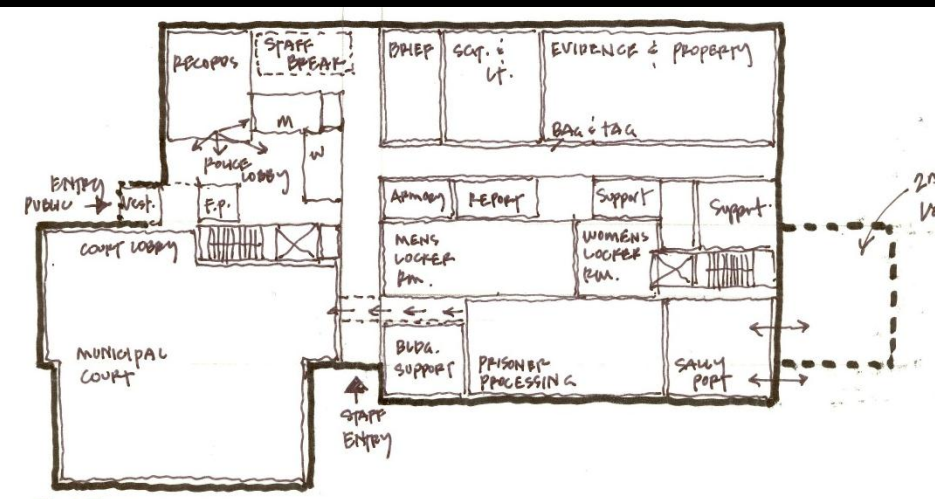 RECORDS
STAFF
BREAK
BRIEF
SGT. &
LT.
EVIDENCE & PROPERTY
BAG & TAG
M
W
POLICE
LOBBY
ENTRY
PUBLIC
Vest.
F.P.
ARMORY
REPORT
Support
Support
COURT LOBBY
MENS
LOCKER
RM.
WOMENS
LOCKER
RM.
MUNICIPAL
COURT
BLDG.
SUPPORT
PRISONER
PROCESSING
SALLY
PORT
STAFF
ENTRY